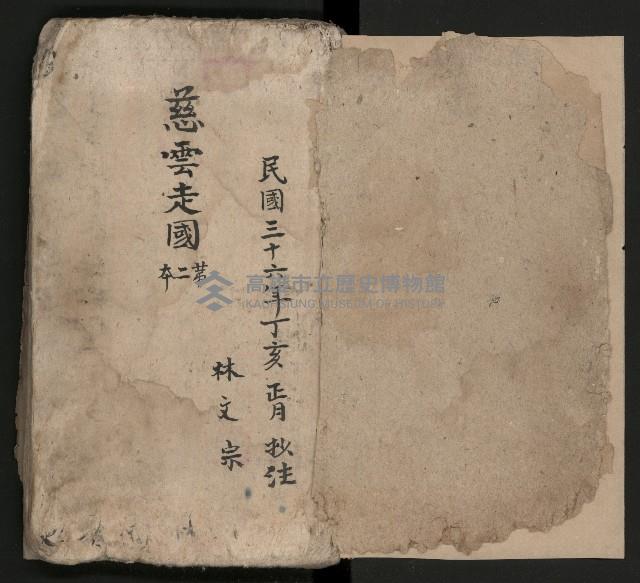 民國三十六年丁亥正月抄注
林文宗
慈雲走國
第二本
高雄市立歷史博物館
KAOHSIUNG MUSEUM OF HISTORY